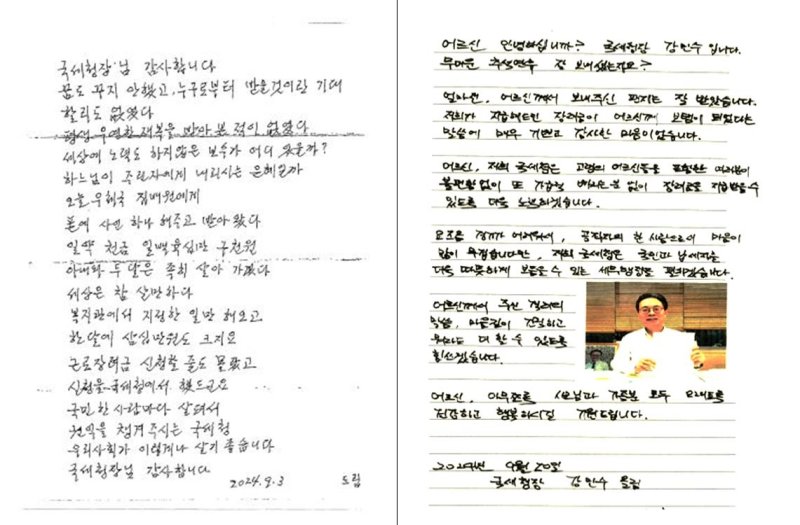 국세청장님 감사합니다
꿈도 꾸지 안했고, 누구로부터 받을것이란 기대
할리도 없었다
평생 우연한 재복을 받아 본 적이 없었다
세상에 노력도 하지않은 보수가 어디 있을까?
하느님이 주린자에게 내리시는 은혜일까
오늘 우체국 집배원에게
폰에 사인 하나 해주고 받아 왔다
일약 천금 일백육십만 구천원
아내와 두 달은 족히 살아 가겠다
세상은 참 살만하다
복지관에서 지정한 일만 해오고
한달에 삼십만원도 크지요
근로장려금 신청할 줄도 몰랐고
신청을 국세청에서 했드군요
국민 한 사람마다 살펴서
권익을 챙겨주시는 국세청
우리사회가 이렇게나 살기 좋습니다
국세청장님 감사합니다
2024.9.3 도림
어르신 안녕하십니까? 국세청장 강민수 입니다.
무더운 추석연휴 잘 보내셨는지요?
얼마전, 어르신께서 보내주신 편지는 잘 받았습니다.
저희가 지급해드린 장려금이 어르신께 보탬이 되었다는
말씀에 매우 기쁘고 감사한 마음이었습니다.
어르신, 저희 국세청은 고령의 어르신들을 포함한 여러분이
불편함없이 또 가급적 빠지는 분 없이 장려금을 지급받을 수
있도록 더욱 노력하겠습니다.
요즈음 경기가 어려워서, 공직자의 한 사람으로서 마음이
많이 무겁습니다만, 저희 국세청은 국민과 납세자를
더욱 따뜻하게 보듬을 수 있는 세무행정을 펼치겠습니다.
어르신께서 주신 격려의
말씀, 마음깊이 간직하고
뭐라도 더 할 수 있도록
힘쓰겠습니다.
어르신, 아무쪼록 사모님과 가족분 모두 오래도록
건강하고 행복하시길 기원드립니다.
2024년 9월 20일
국세청장 강민수 올림